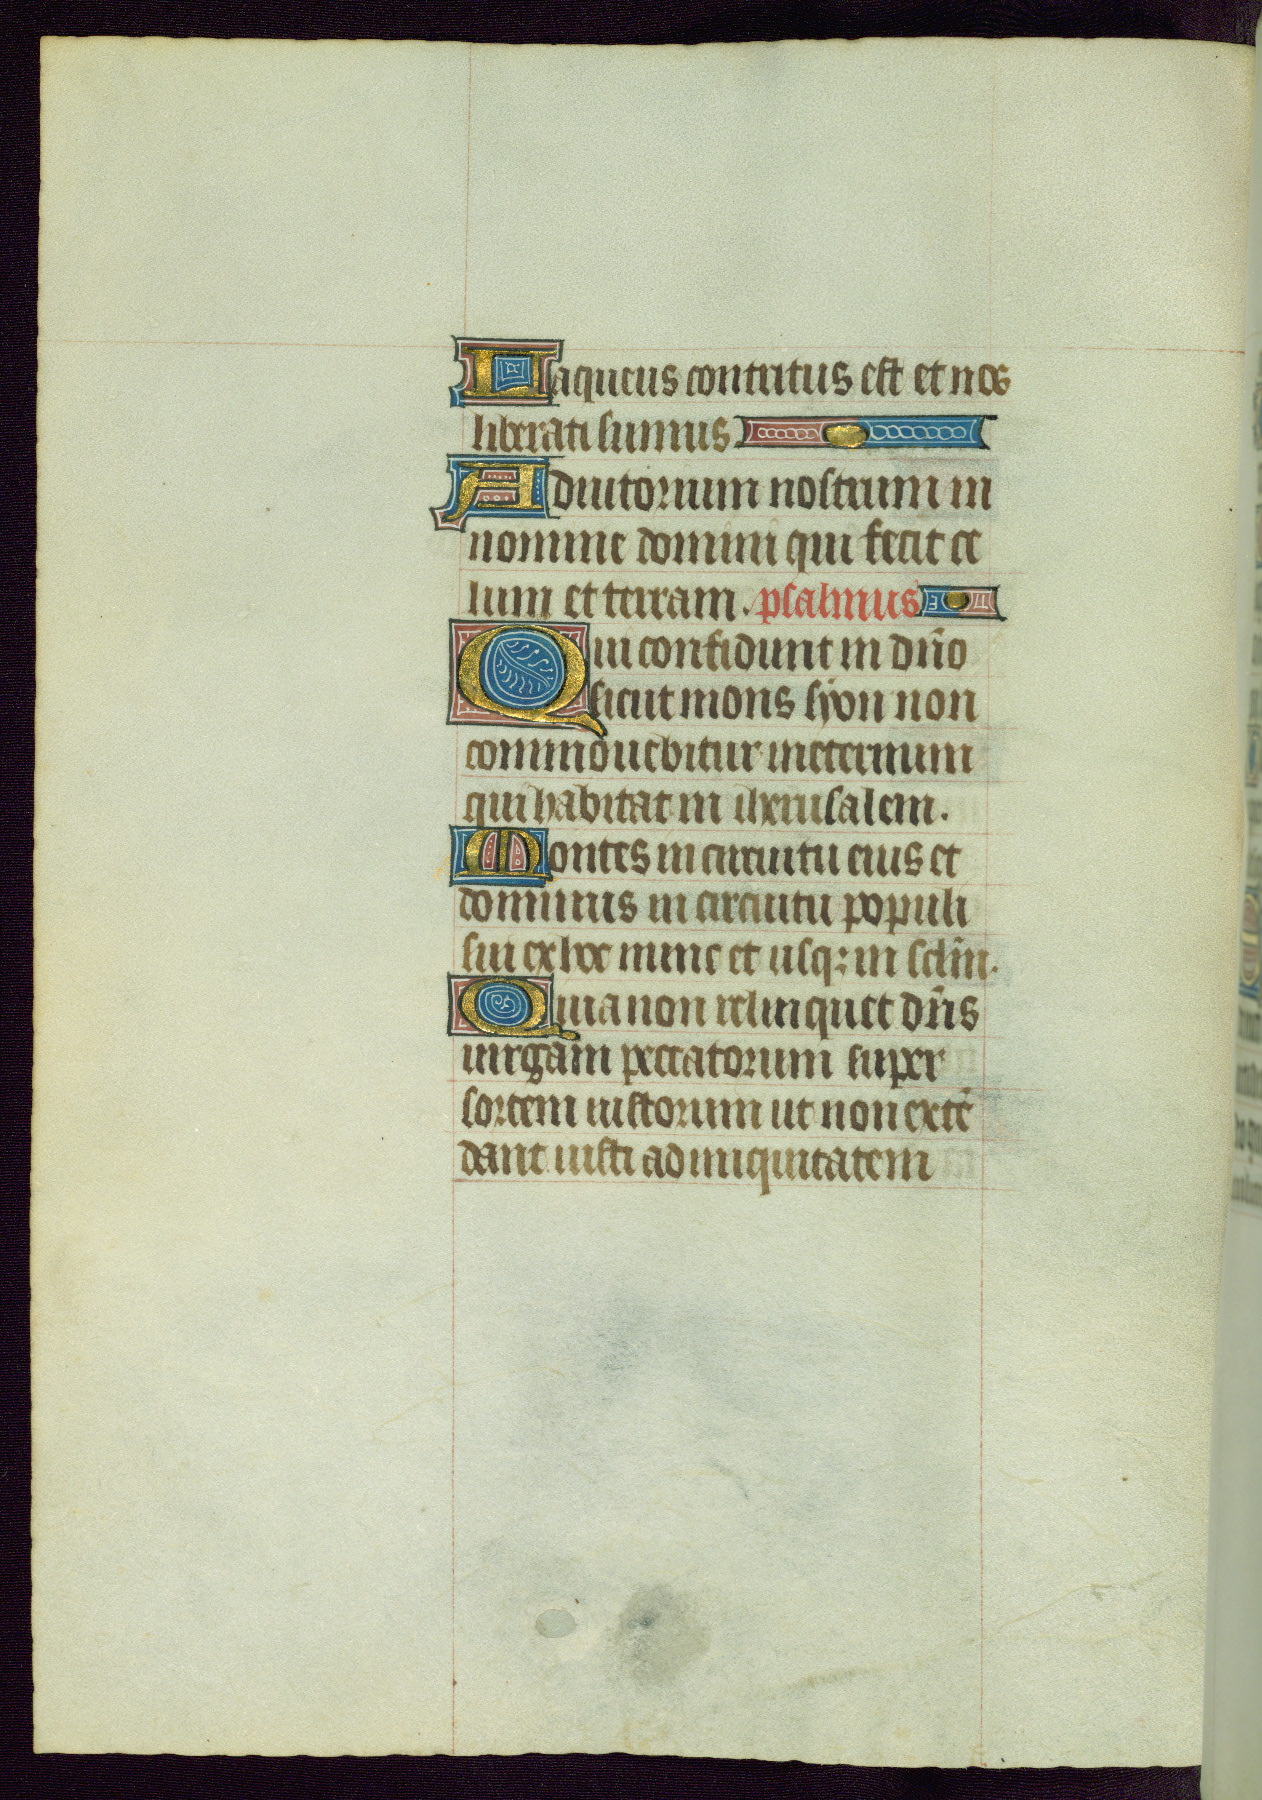 Laqueus contritus est et nos
liberati sumus
Adiutorium nostrum in
nomine domini qui fecit ce
lum et terram. psalmus
Qui confidunt in dño
sicut mons syon non
commouebitur ineternum
qui habitat in iherusalem.
Montes in circuitu eius et
dominus in circuitu populi
sui ex hoc nunc et usqꝫ in sclm̃.
Quia non relinquet dñs
uirgam peccatorum super
sortem iustorum ut non extẽ
dant iusti ad iniquitatem